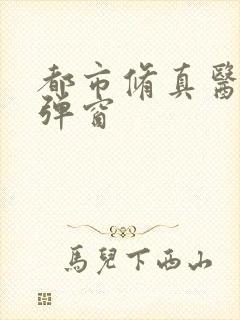 都市脩真醫
彈窗
馬兒下西山